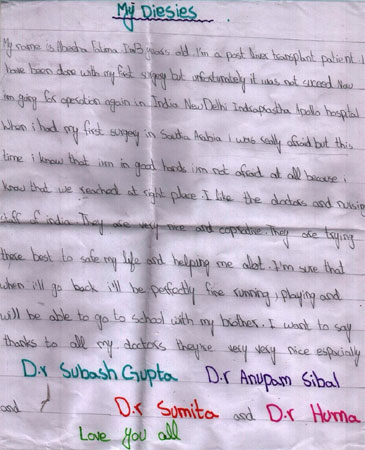 My Diesies
My name is Abeisha Fatima Im 13 years old. I'm a post liver transplant patient I
have been done with my first surgery but unfortunately it was not succeed Now
im going for operation again in India New Delhi Indraprastha Apollo hospital
When i had my first surgery in Saudia Arabia I was really afraid but this
time i know that im in good hands im not afraid at all because i
know that we reached at right place I like the doctors and nursing
staff of india. They are very nice and They are trying
there best to safe my life and helping me alot. I'm sure that
when i'll go back i'll be perfectly fine running, playing and
will be able to go to school with my brother. I want to say
thanks to all my doctors theyre very very nice especially
D.r Subash Gupta D.r Anupam Sibal
and D.r Sumita and D.r Huma
Love You all